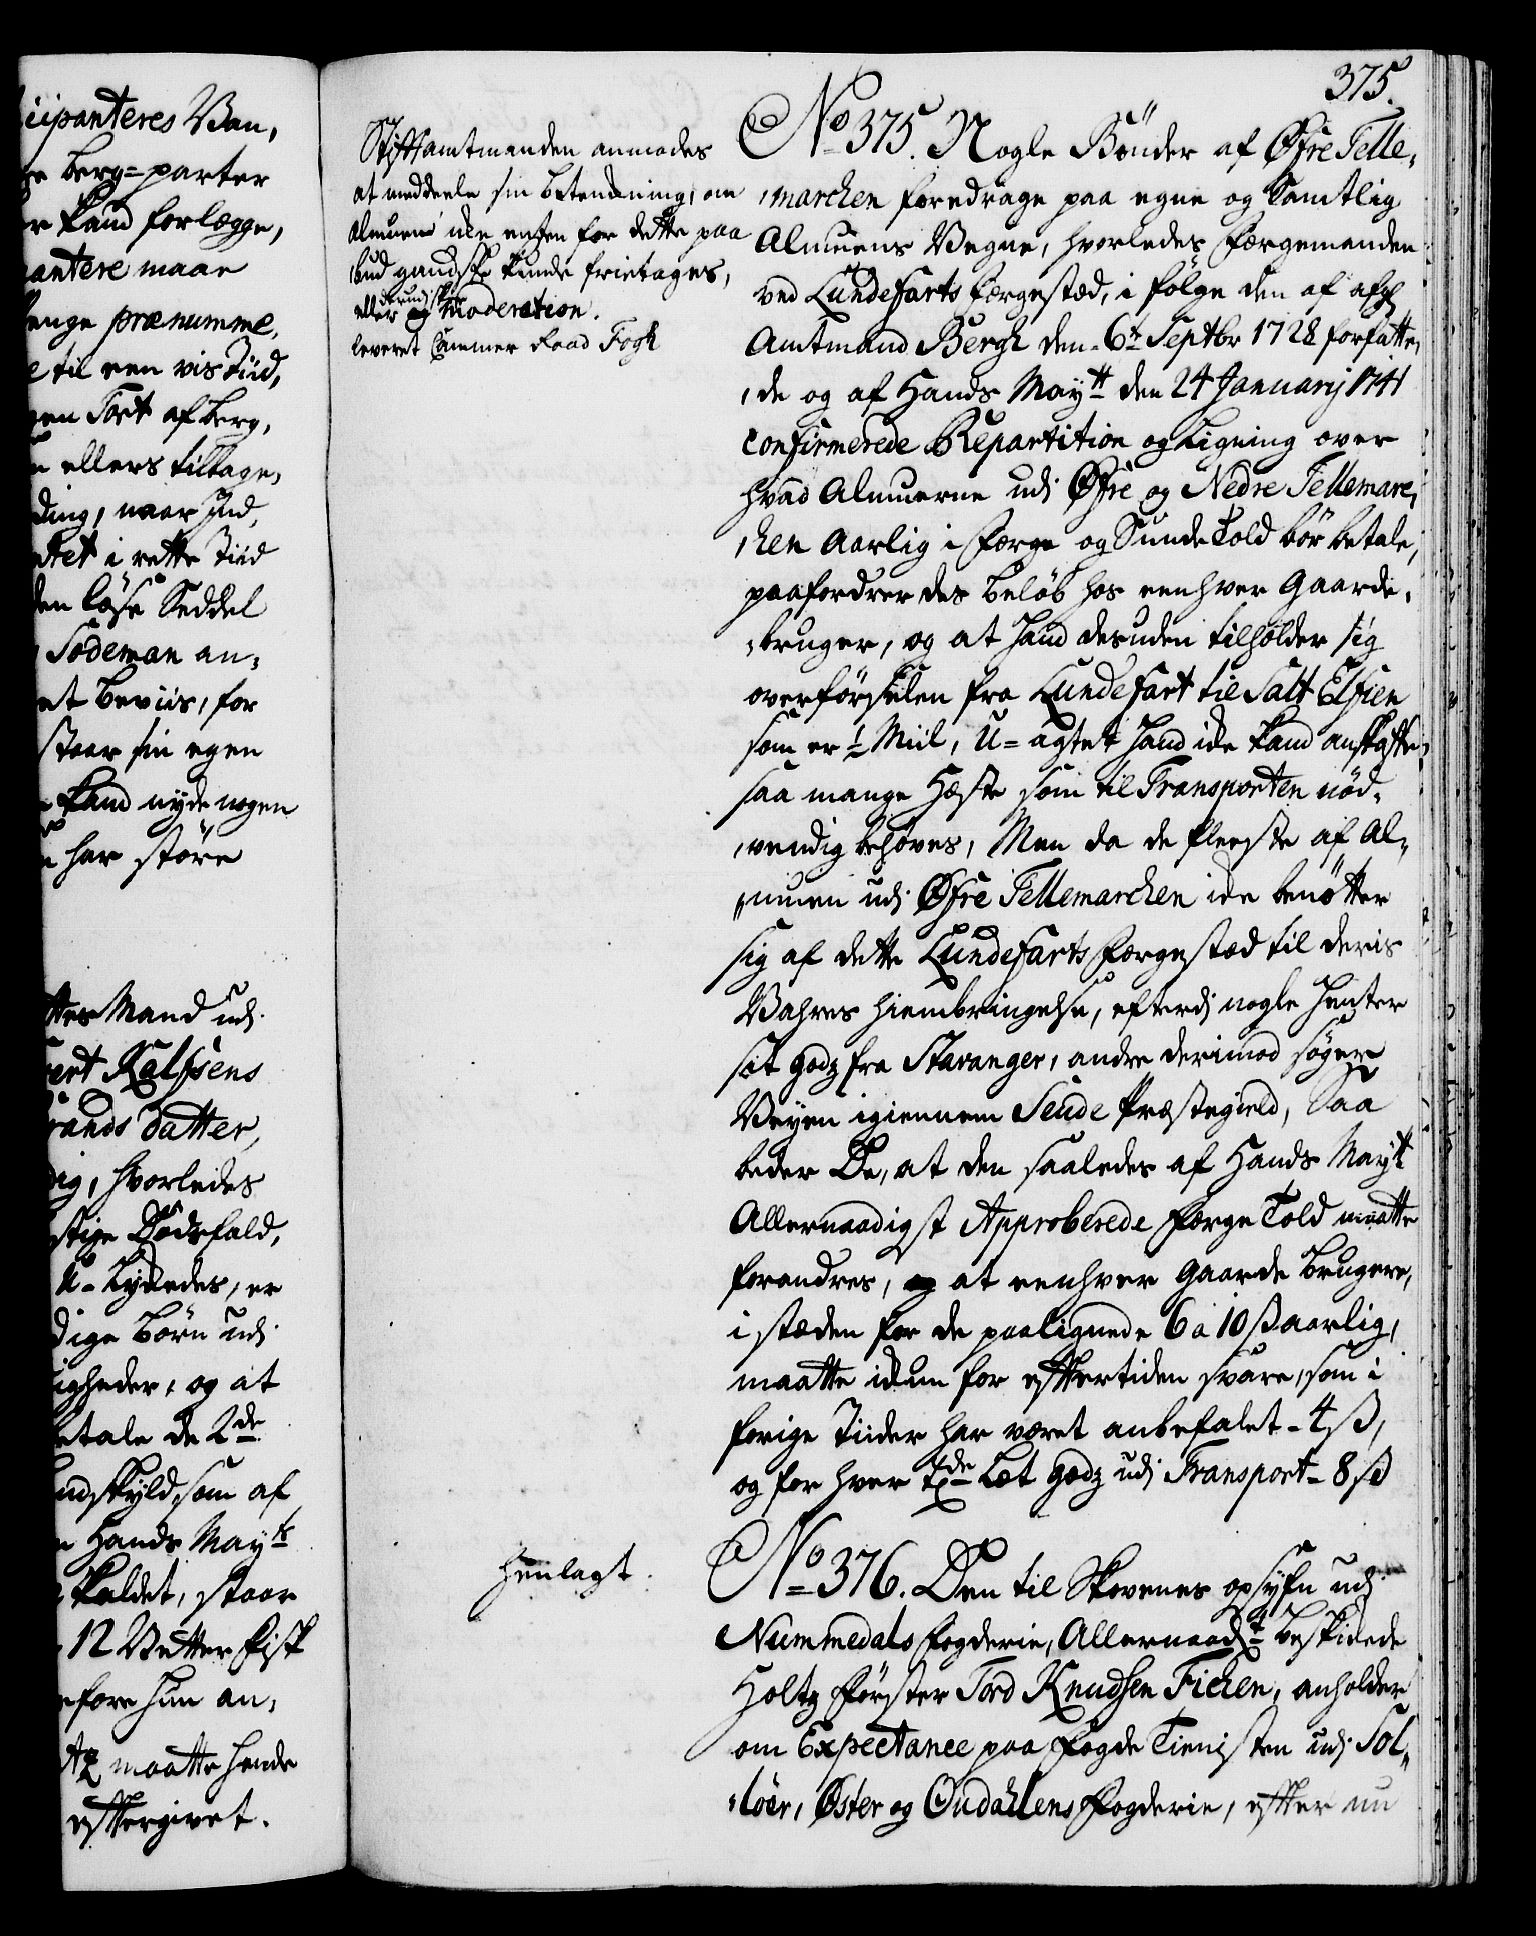 iipanteres Van,
berg=parter
kand forlegge,
antere maae
enge prænumme,
til een vis Tiid,
en Tort af berg,
ellers tiltage,
ding, naar Ind,
tet i rette Tiid
en løse Seddel
Sodeman an,
et beviis, for
staar sin egen
kand nyde nogen
har större
Mand udj
ert Ralfsens
rands datter,
dig, hvorledes
stige Dödsfald,
U-Lydedes, er
dige börn udj
igheder, og at
etale de 2de
ndskyld, som af
Hands Mayts
kaldet, staar
12 Vetter Fisk
efore hun an,
maatte hende
eftergivet.
375.
Stiftamtmanden anmodes
at meddeele sin betenckning, om
Almuen icke enten for dette paa
bud gandske kunde frietages,
derudj skee
eller og Moderation.
leveret Cammer Raad Fogh
No 375. Nogle Bönder af Øfre Telle,
,marchen foredrage paa egne og samtlig
Almuens Vegne, hvorledes færgemanden
ved Lundefarts færgestæd, i fölge den af afg
Amtmand Bergh den 6te Septbr 1728 forfatte,
,de og af Hands Maytt den 24 Januarij 1741
confirmerede Repartition og Ligning over
hvad Almuerne udj Øfre og Nedre Tellemare,
,hen aarlig i færge og Sunde Told bör betale,
paafordrer des beløb hos eenhver Gaarde,
,bruger, og at hand desuden tilholder sig
overførselen fra Lundefart til Salt Elfien
som er ½ Miil, U=agtet hand icke kand anskaffe
saa mange Heste som til Transporten nöd,
,vendig behøves, Men da de fleeste af Al,
,muen udj Øfre Tellemarchen icke benötter
sig af dette Lundefarts færgestæd til deris
Vahres hiembringelse, efterdj nogle henter
sit godz fra Stavanger, andre derimod söger
Veyen igiennem Seude Præstegield, Saa
beder De, at den saaledes af Hands Maytt
Allernaadigst Approberede færge Told maatte
forandres, og at eenhver Gaarde brugere,
i stæden for de paalignede 6 a 10 ß aarlig,
maatte ickun for eftertiden svare, som i
forige Tiider har været anbefalet - 4 ß,
og for hver Tde Læt godz udj Transport - 8 ß
Henlagt.
No 376. Den til Skovenes opsyn udj
Nummedals fogderie, Allernaadt beskickede
Holtz förster Tord Knudsen Ficken, anholder
om Expectance paa fogde Tienisten udj Sol,
,löer, Øster og Oudahlens fogderie, efter nu